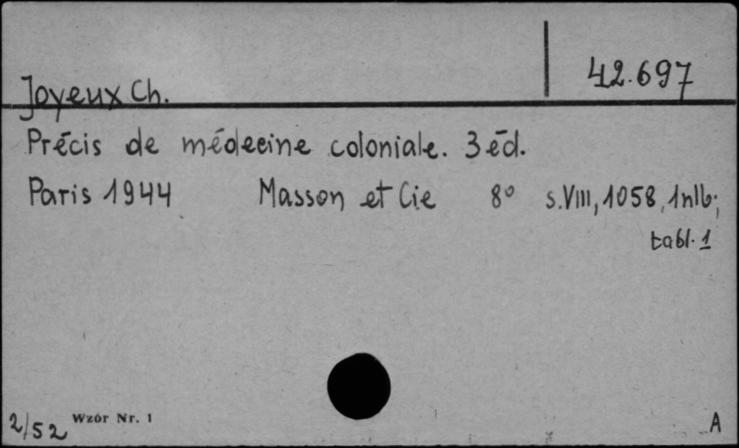 42.697
Joyeux Ch.
Précis de médecine coloniale. 3 éd.
Paris 1944 Masson et Cie 8° s. VIII, 1058, 1nlb;
tabl. 1
2/52 Wzór Nr. 1 A